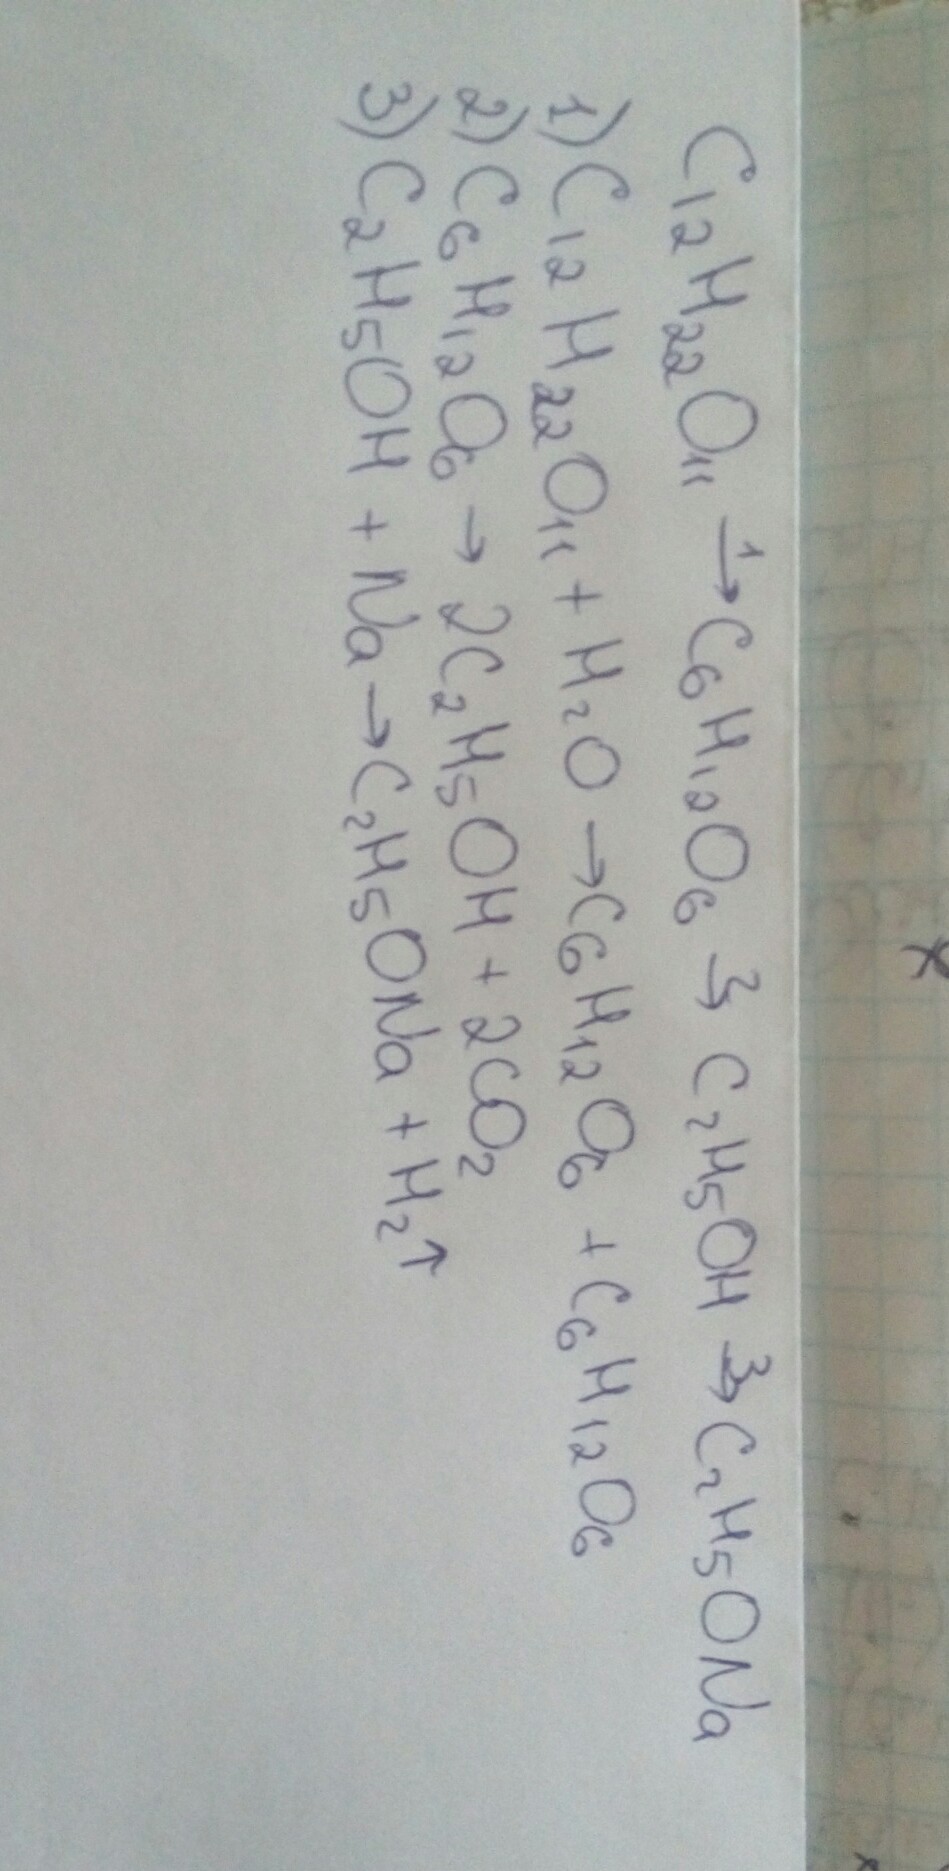 C₁₂H₂₂O₁₁ →¹ C₆H₁₂O₆ →³ C₂H₅OH →³ C₂H₅ONa
1) C₁₂H₂₂O₁₁ + H₂O → C₆H₁₂O₆ + C₆H₁₂O₆
2) C₆H₁₂O₆ → 2C₂H₅OH + 2CO₂
3) C₂H₅OH + Na → C₂H₅ONa + H₂↑